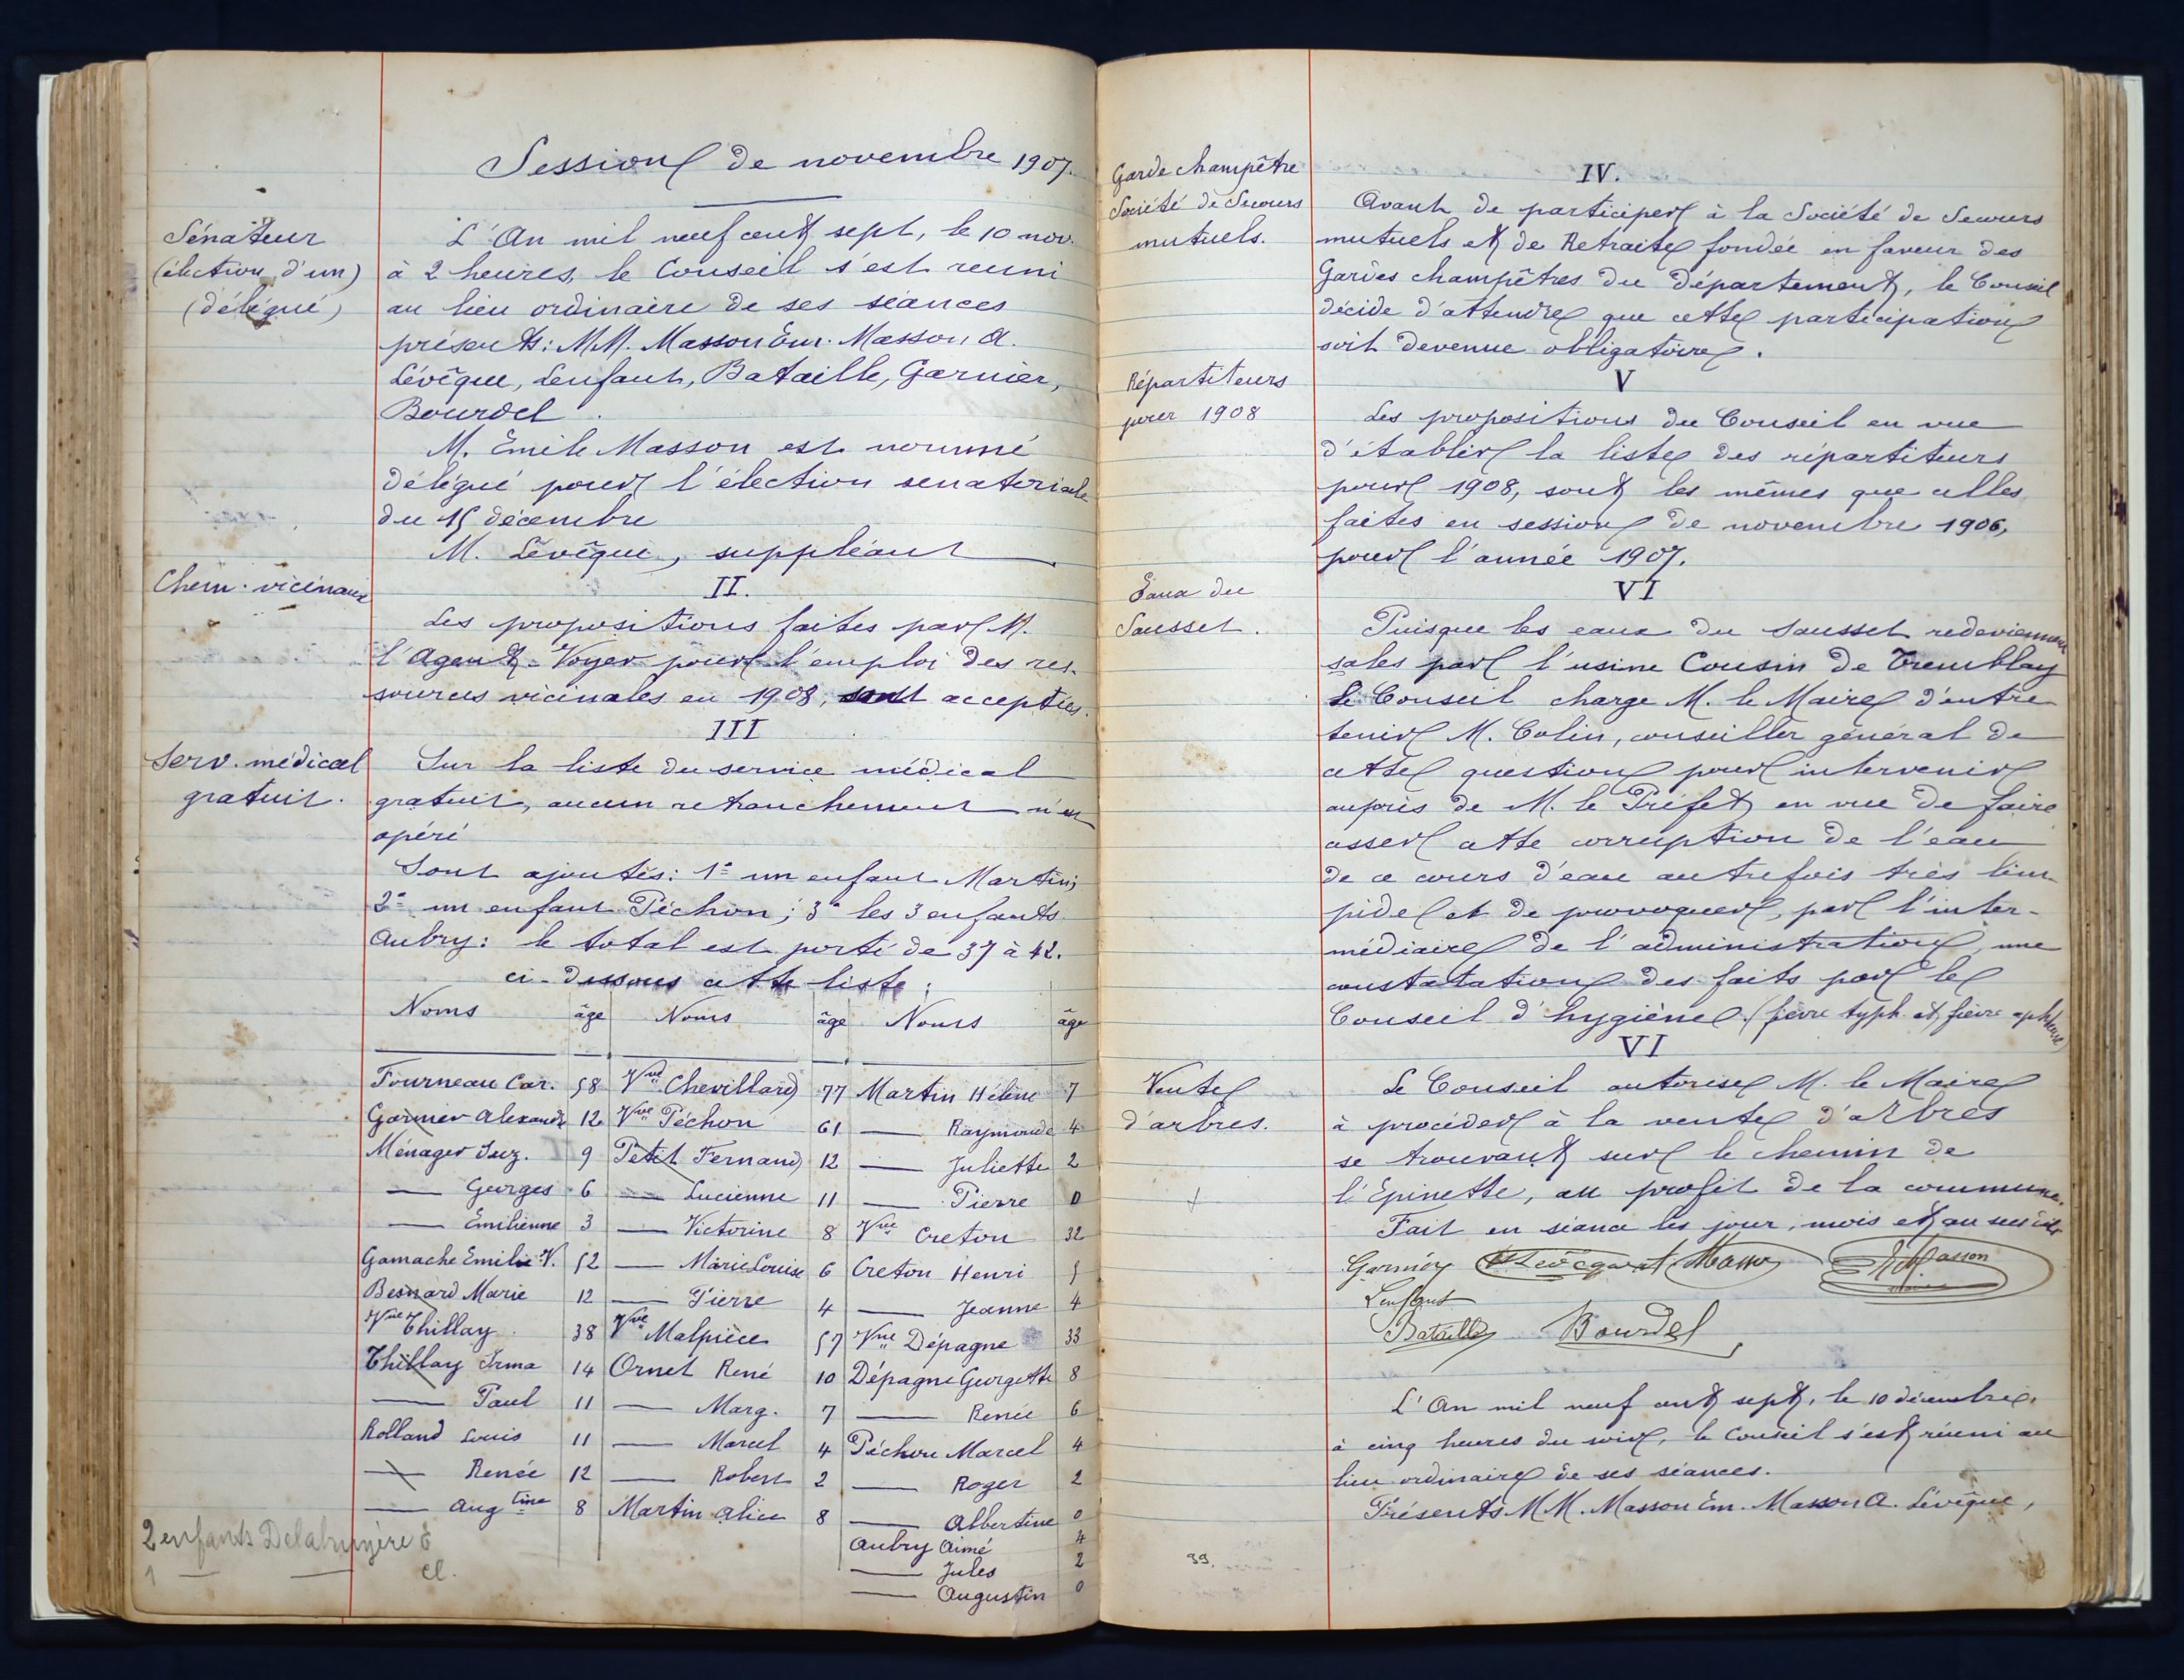 Session de novembre 1907.
Sénateur
(élection d'un)
(délégué)
L'An mil neuf cent sept, le 10 nov.
à 2 heures, le Conseil s'est reuni
au lieu ordinaire de ses séances
présents: MM. Masson Em. Masson A.
Lévêque, Lenfant, Bataille, Garnier,
Bourdel.
M. Emile Masson est nommé
délégué pour l'élection senatoriale
du 15 décembre
M. Lévêque, suppléant
Chem. vicinaux
II.
Les propositions faites par M.
l'Agent-Voyer pour l'emploi des res-
sources vicinales en 1908, sont acceptées.
III
Serv. médical
gratuit.
Sur la liste du service médical
gratuit, aucun retranchement n'est
opéré
Sont ajoutés: 1° un enfant Martin;
2° un enfant Péchon; 3° les 3 enfants
Aubry: le total est porté de 37 à 42.
ci-dessous cette liste:
Noms âge Noms âge Noms âge
Tourneau Car. 58 Vve Chevillard 77 Martin Hélène 7
Garnier Alexandre 12 Vve Péchon 61 — Raymonde 4
Ménager Suz. 9 Petit Fernand 12 — Juliette 2
— Georges 6 — Lucienne 11 — Pierre 0
— Emilienne 3 — Victorine 8 Vve Creton 32
Gamache Emilie V. 52 — Marie Louise 6 Creton Henri 5
Besnard Marie 12 — Pierre 4 — Jeanne 4
Vve Thillay 38 Vve Malpièce 57 Vve Dépagne 33
Thillay Irma 14 Ornet René 10 Dépagne Georgette 8
— Paul 11 — Marg. 7 — Renée 6
Rolland Louis 11 — Marcel 4 Péchon Marcel 4
— Renée 12 — Robert 2 — Roger 2
— Aug tine 8 Martin Alice 8 — Albertine 0
Aubry Aimé 4
— Jules 2
— Augustin 0
2 enfants Delabruyère E
1 — — cl.
Garde champêtre
Société de Secours
mutuels.
IV.
Avant de participer à la Société de Secours
mutuels et de Retraite fondée en faveur des
Gardes champêtres du Département, le Conseil
décide d'attendre que cette participation
soit devenue obligatoire.
Répartiteurs
pour 1908
V
Les propositions du Conseil en vue
d'établir la liste des répartiteurs
pour 1908, sont les mêmes que celles
faites en session de novembre 1906,
pour l'année 1907.
Eaux du
Sausset.
VI
Puisque les eaux du Sausset redeviennent
sales par l'usine Cousin de Tremblay
le Conseil charge M. le Maire d'entre
tenir M. Colin, conseiller général de
cette question pour intervenir
auprès de M. le Préfet en vue de faire
cesser cette corruption de l'eau
de ce cours d'eau autrefois très lim
pide et de provoquer, par l'inter-
médiaire de l'administration, une
constatation des faits par le
Conseil d'hygiène. (fièvre typh. et fièvre aphteuse)
VI
Vente
d'arbres.
Le Conseil autorise M. le Maire
à procéder à la vente d'arbres
se trouvant sur le chemin de
l'Epinette, au profit de la commune.
Fait en séance les jour, mois et an susdits
Garnier Masson EMasson
Lenfant
Bataille Bourdel
L'An mil neuf cent sept, le 10 décembre,
à cinq heures du soir, le Conseil s'est réuni au
lieu ordinaire de ses séances.
Présents MM. Masson Em. Masson A. Lévêque,
99.